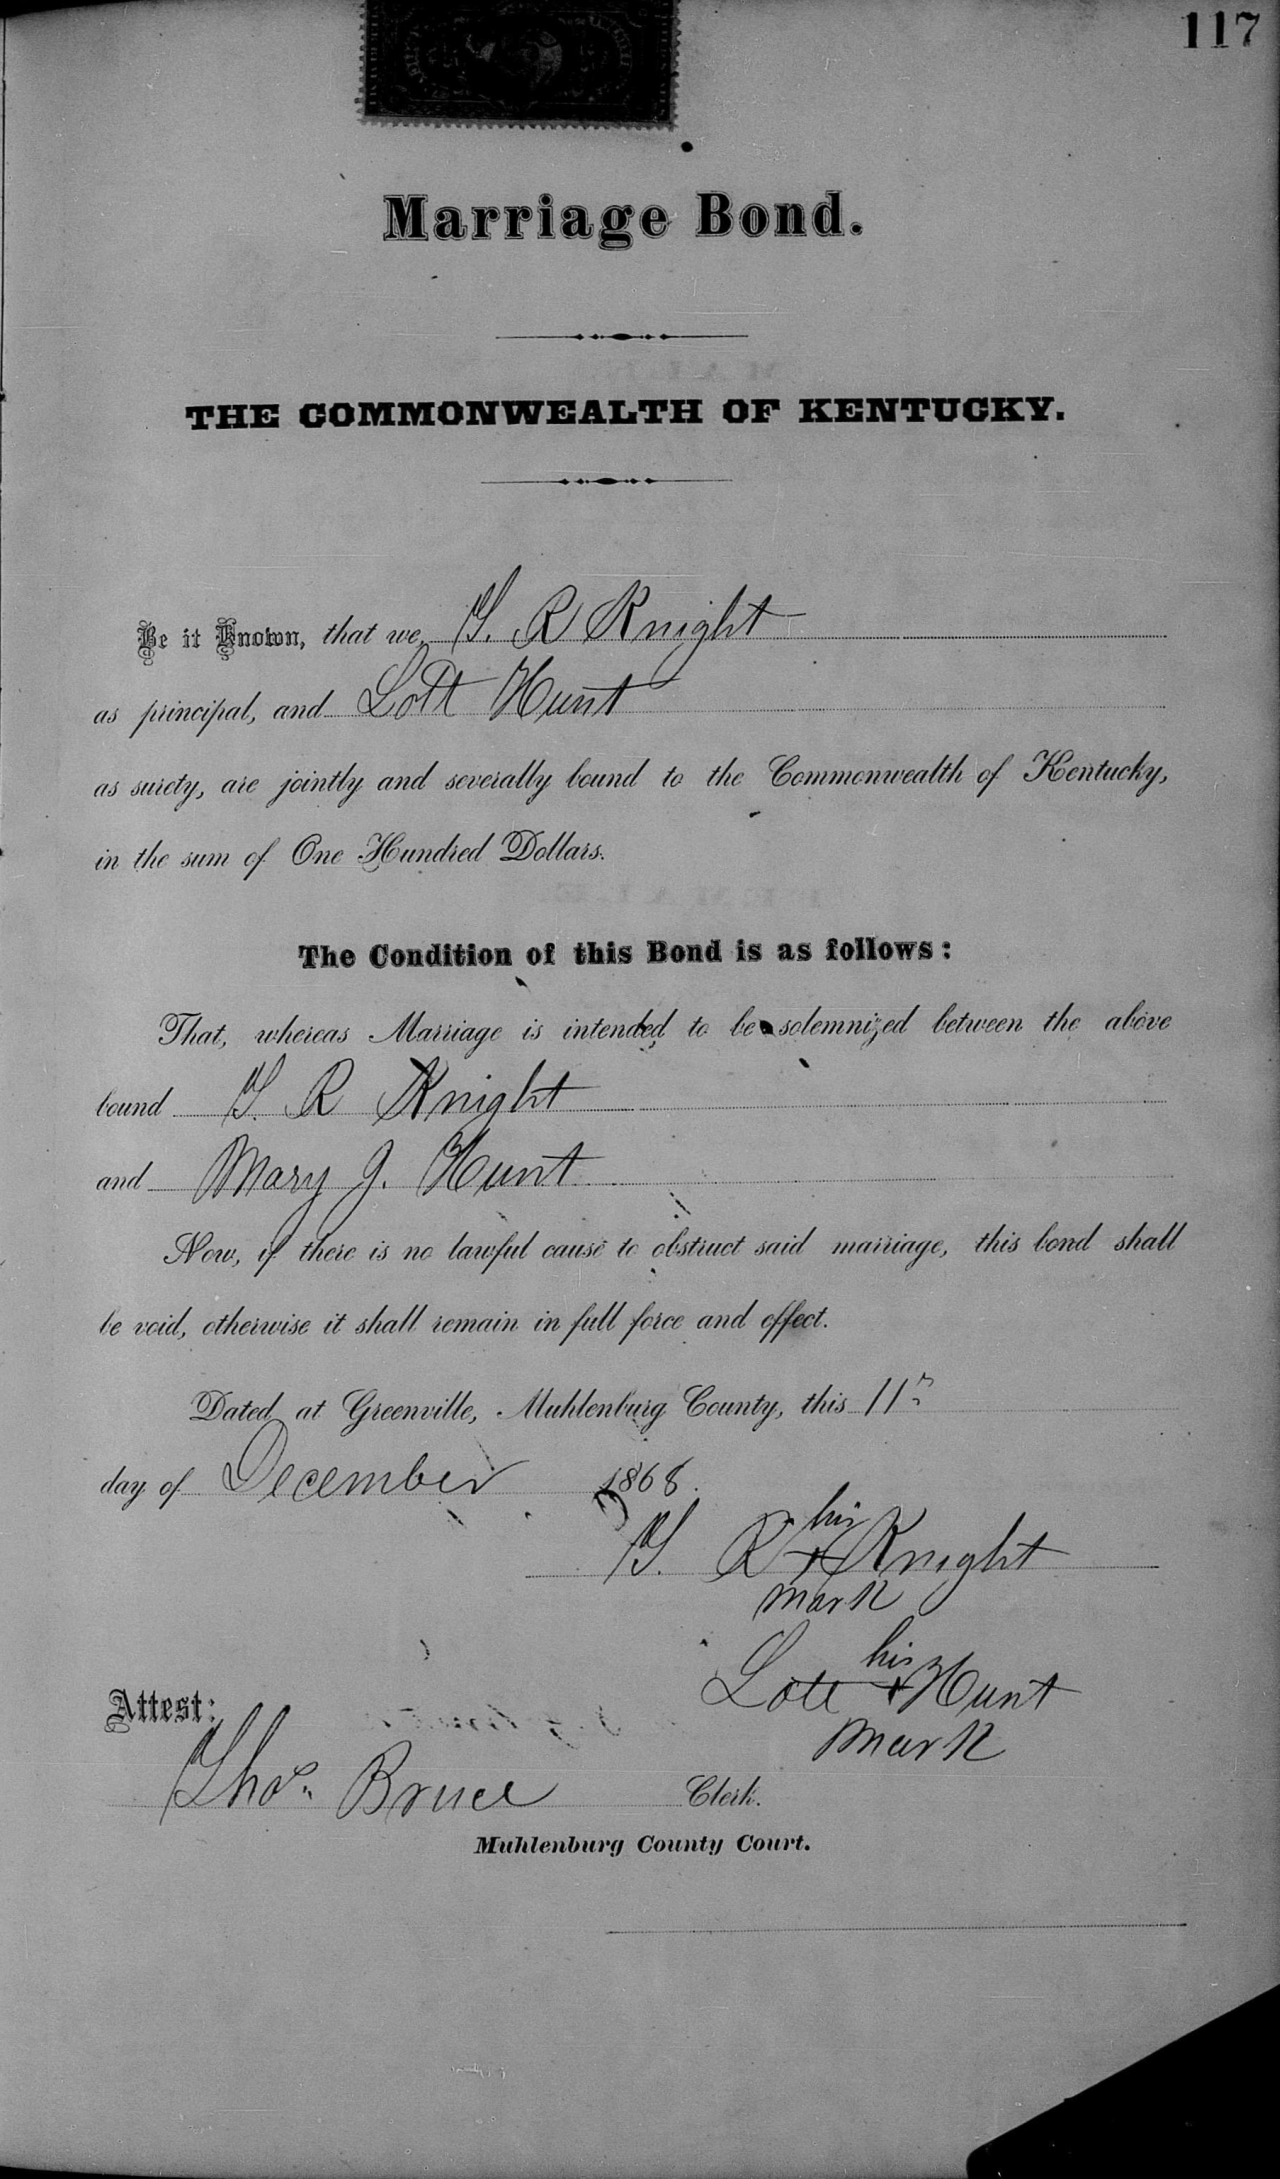 117
Marriage Bond.
THE COMMONWEALTH OF KENTUCKY.
Be it Known, that we, T. R Knight
as principal, and Lott Hunt
as surety, are jointly and severally bound to the Commonwealth of Kentucky,
in the sum of One Hundred Dollars.
The Condition of this Bond is as follows:
That, whereas Marriage is intended to be solemnized between the above
bound T. R Knight
and Mary J. Hunt
Now, if there is no lawful cause to obstruct said marriage, this bond shall
be void, otherwise it shall remain in full force and effect.
Dated at Greenville, Muhlenburg County, this 11th
day of December 1868.
his
T. R + Knight
mark
his
Lott + Hunt
mark
Attest:
Thos. Bruce Clerk.
Muhlenburg County Court.